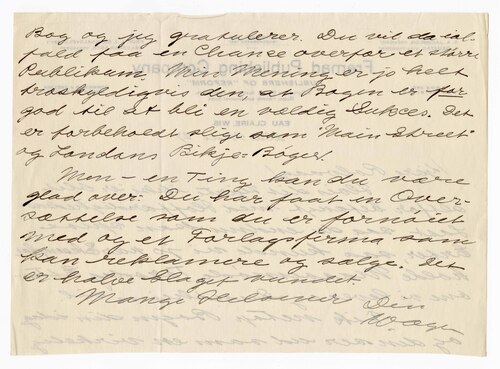 Bog og jeg gratulerer. Du vil da ial-
fald faa en Chanse overfor et større
Publikum, Min Mening er jo helt
troskyldigvis den, at Bogen er for
god til at bli en vældig Sukces. Det
er forbeholdt slige som "Main Street"
og Londons Bikje-Bøger!
Men – en Ting kan du være
glad over: Du har faat en Over-
sættelse som du er fornøiet
med og et Forlagsfirma som
kan reklamere og sælge. Det
er halve Slaget vundet.
Mange Hilsener Din